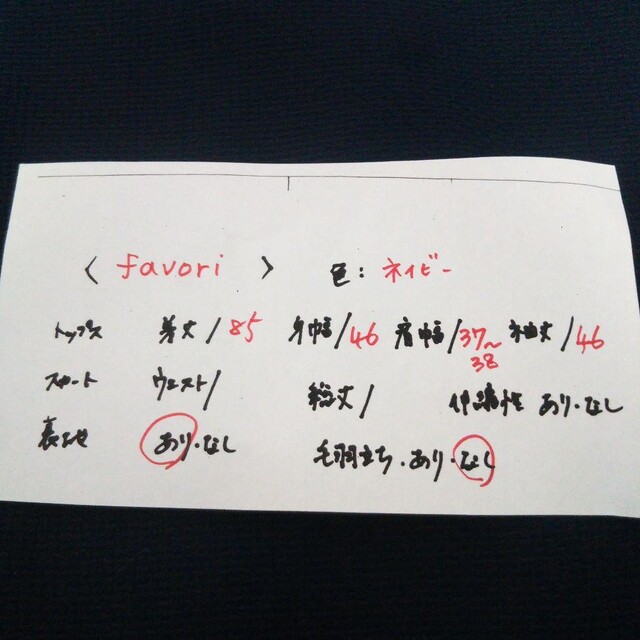 〈 favori 〉 色: ネイビー
トップス 着丈/85 身幅/46 肩幅/37〜38 袖丈/46
スカート ウエスト/ 総丈/ 伸縮性 あり・なし
裏地 あり・なし 毛羽立ち・あり・なし